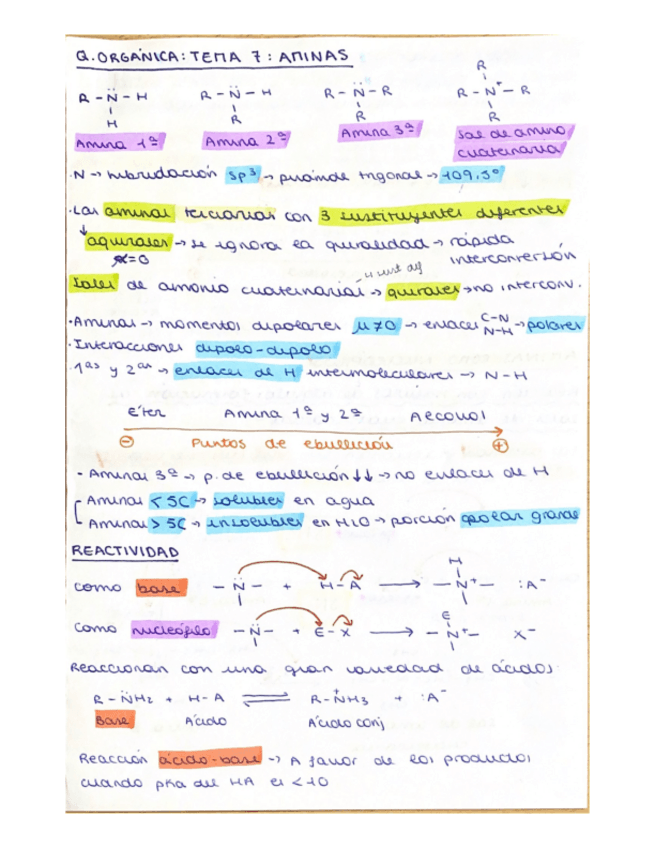 Q. ORGÁNICA: TEMA 7: AMINAS
R
R - N̈ - H R - N̈ - H R - N̈ - R R - N⁺ - R
H R R R
Amina 1ª Amina 2ª Amina 3ª Sal de amino cuaternaria
·N → hibridación sp³ → pirámide trigonal → 109,5º
·Las aminas terciarias con 3 sustituyentes diferentes
↓
aquirales → se ignora la quiralidad → rápida interconversión
α=0
4 sust dif
Sales de amonio cuaternarias → quirales → no interconv.
·Aminas → momentos dipolares μ≠0 → enlaces C-N N-H → polares
·Interacciones dipolo-dipolo
·1ªˢ y 2ªˢ → enlaces de H intermoleculares → N-H
Éter Amina 1ª y 2ª Alcohol
⊖ Puntos de ebullición ⊕
· Aminas 3ª → p. de ebullición ↓↓ → no enlaces de H
Aminas < 5C → solubles en agua
Aminas > 5C → insolubles en H2O → porción apolar grande
REACTIVIDAD
H
como base - N̈ - + H - A ⟶ - N⁺ - :A⁻
E
como nucleófilo - N̈ - + E - X ⟶ - N⁺ - X⁻
Reaccionan con una gran variedad de ácidos
R - N̈H2 + H - A ⇌ R - N⁺H3 + :A⁻
Base Ácido Ácido conj
Reacción ácido-base → A favor de los productos
cuando pKa del HA es < 10